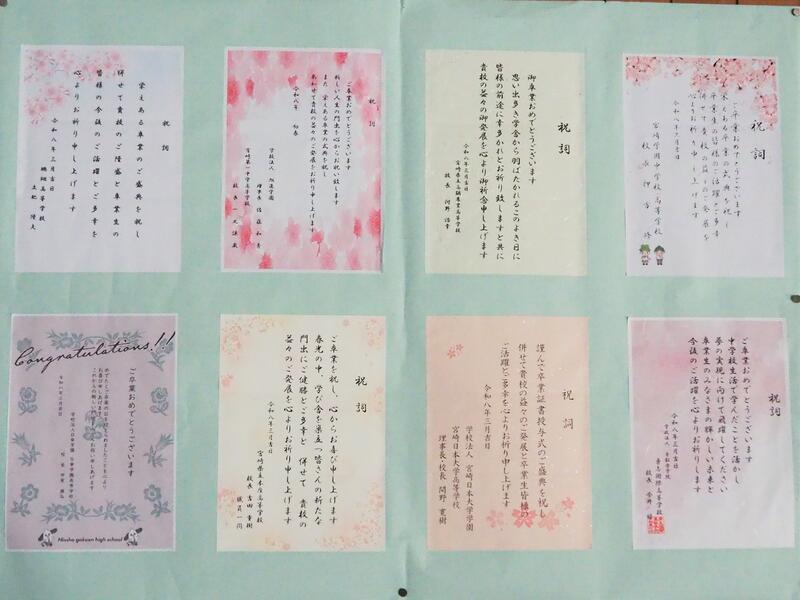 祝 詞
ご卒業おめでとうございます
栄えある卒業の式典を祝し
卒業生の皆様のご活躍とご多幸
併せて貴校の益々のご発展を
心よりお祈り申し上げます
令和八年三月吉日
祝 詞
御卒業おめでとうございます
思い出多き学舎から羽ばたかれるこのよき日に
皆様の前途に幸多かれとお祈り致しますと共に
貴校の益々の御発展を心より御祈念申し上げます
令和八年三月吉日
校長 河野 浩幸
祝 詞
ご卒業おめでとうございます
新しい人生の門出を心からお祝い致します
また 栄えある卒業の式典を祝し
あわせて貴校の益々のご発展をお祈り申し上げます
令和八年 初春
学校法人 旭進学園
理事長 佐藤 和秀
宮崎第一中学高等学校
祝 詞
栄えある卒業のご盛典を祝し
併せて貴校のご隆盛と卒業生の
皆様の今後のご活躍とご多幸を
心よりお祈り申し上げます
令和八年三月吉日
祝詞
ご卒業おめでとうございます
中学校生活で学んだことを活かし
夢の実現に向けて飛躍してください
卒業生のみなさまの輝かしい未来と
今後のご活躍を心よりお祈りします
令和八年三月吉日
祝 詞
謹んで卒業証書授与式のご盛典を祝し
併せて貴校の益々のご発展と卒業生皆様の
ご活躍とご多幸を心よりお祈り申し上げます
令和八年三月吉日
学校法人 宮崎日本大学学園
宮崎日本大学高等学校
理事長・校長 関野 寛樹
祝 詞
ご卒業を祝し、心からお喜び申し上げます
春光の中、学び舎を巣立つ皆さんの新たな
門出にご健勝とご多幸と 併せて 貴校の
益々のご発展を心よりお祈り申し上げます
令和八年三月吉日
宮崎県立本庄高等学校
校長 吉田 幸樹
職員一同
Congratulations!!!
ご卒業おめでとうございます
令和八年三月吉日
Nissho gakuen high school